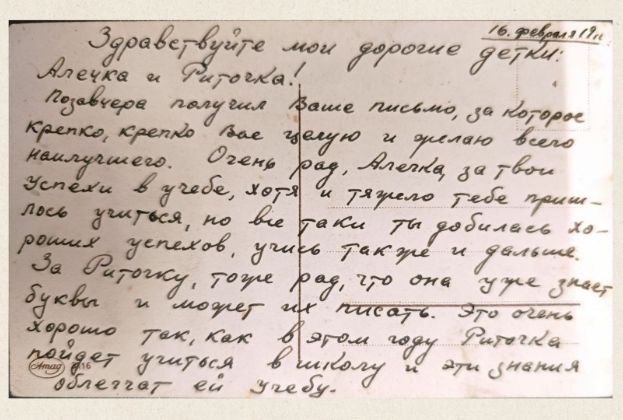 16. февраля 19
Здравствуйте мои дорогие детки:
Алечка и Риточка!
Позавчера получил Ваше письмо, за которое
крепко, крепко Вас целую и желаю всего
наилучшего. Очень рад, Алечка, за твои
успехи в учебе, хотя и тяжело тебе приш-
лось учиться, но все таки ты добилась хо-
роших успехов, учись также и дальше.
За Риточку, тоже рад, что она уже знает
буквы и может их писать. Это очень
хорошо так, как в этом году Риточка
пойдет учиться в школу и эти знания
облегчат ей учебу.